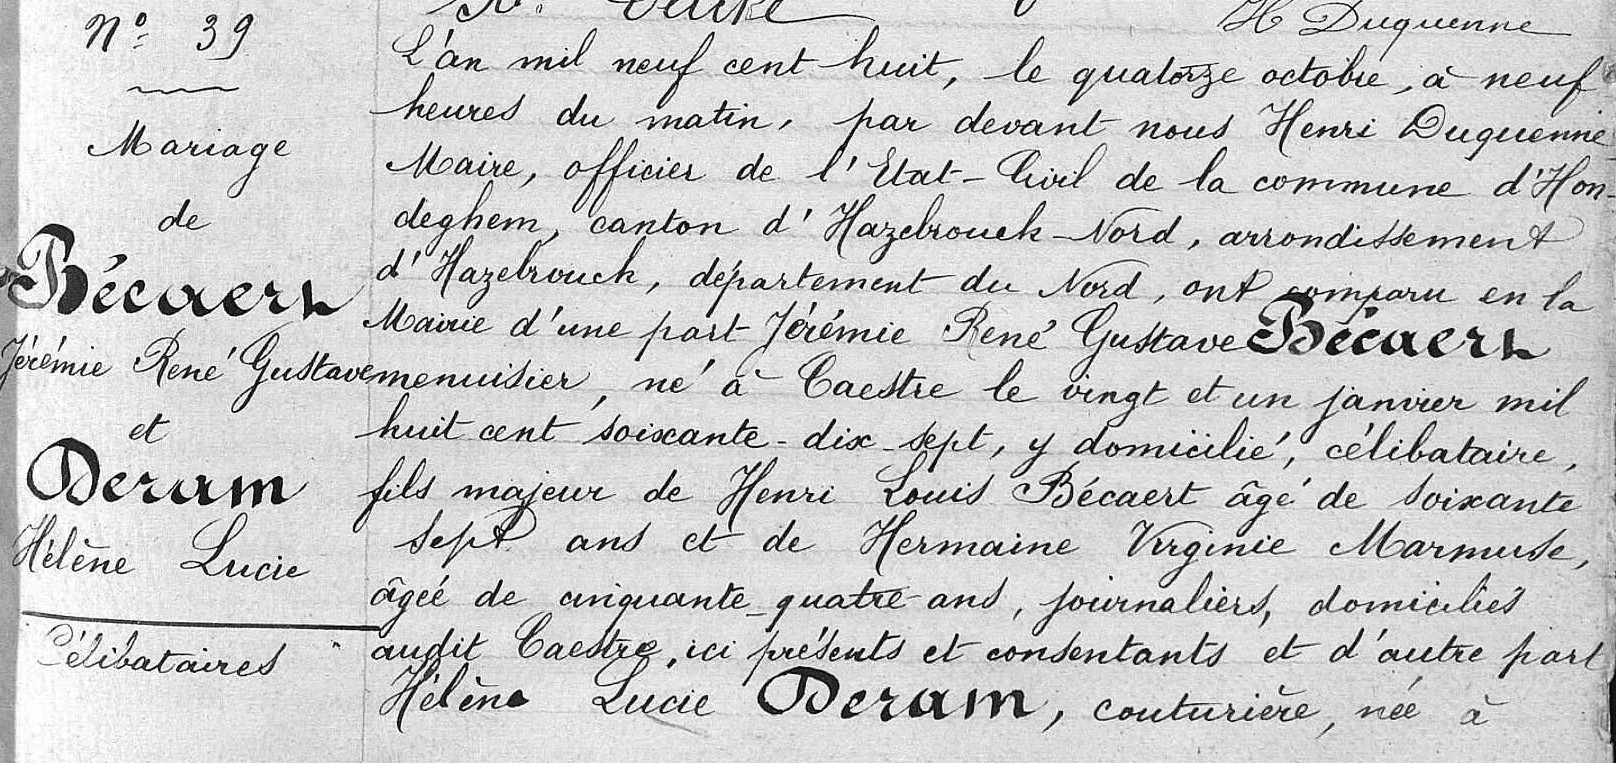 H Duquenne
N° 39
Mariage
de
Bécaert
Jérémie René Gustave
et
Deram
Hélène Lucie
Célibataires
L'an mil neuf cent huit, le quatorze octobre, à neuf
heures du matin, par devant nous Henri Duquenne
Maire, officier de l'Etat-Civil de la commune d'Hon-
deghem, canton d'Hazebrouck-Nord, arrondissement
d'Hazebrouck, département du Nord, ont comparu en la
Mairie d'une part Jérémie René Gustave Bécaert
menuisier, né à Caestre le vingt et un janvier mil
huit cent soixante-dix-sept, y domicilié, célibataire,
fils majeur de Henri Louis Bécaert âgé de soixante
sept ans et de Hermaine Virginie Marmuse,
âgée de cinquante-quatre ans, journaliers, domiciliés
audit Caestre, ici présents et consentants et d'autre part
Hélène Lucie Deram, couturière, née à